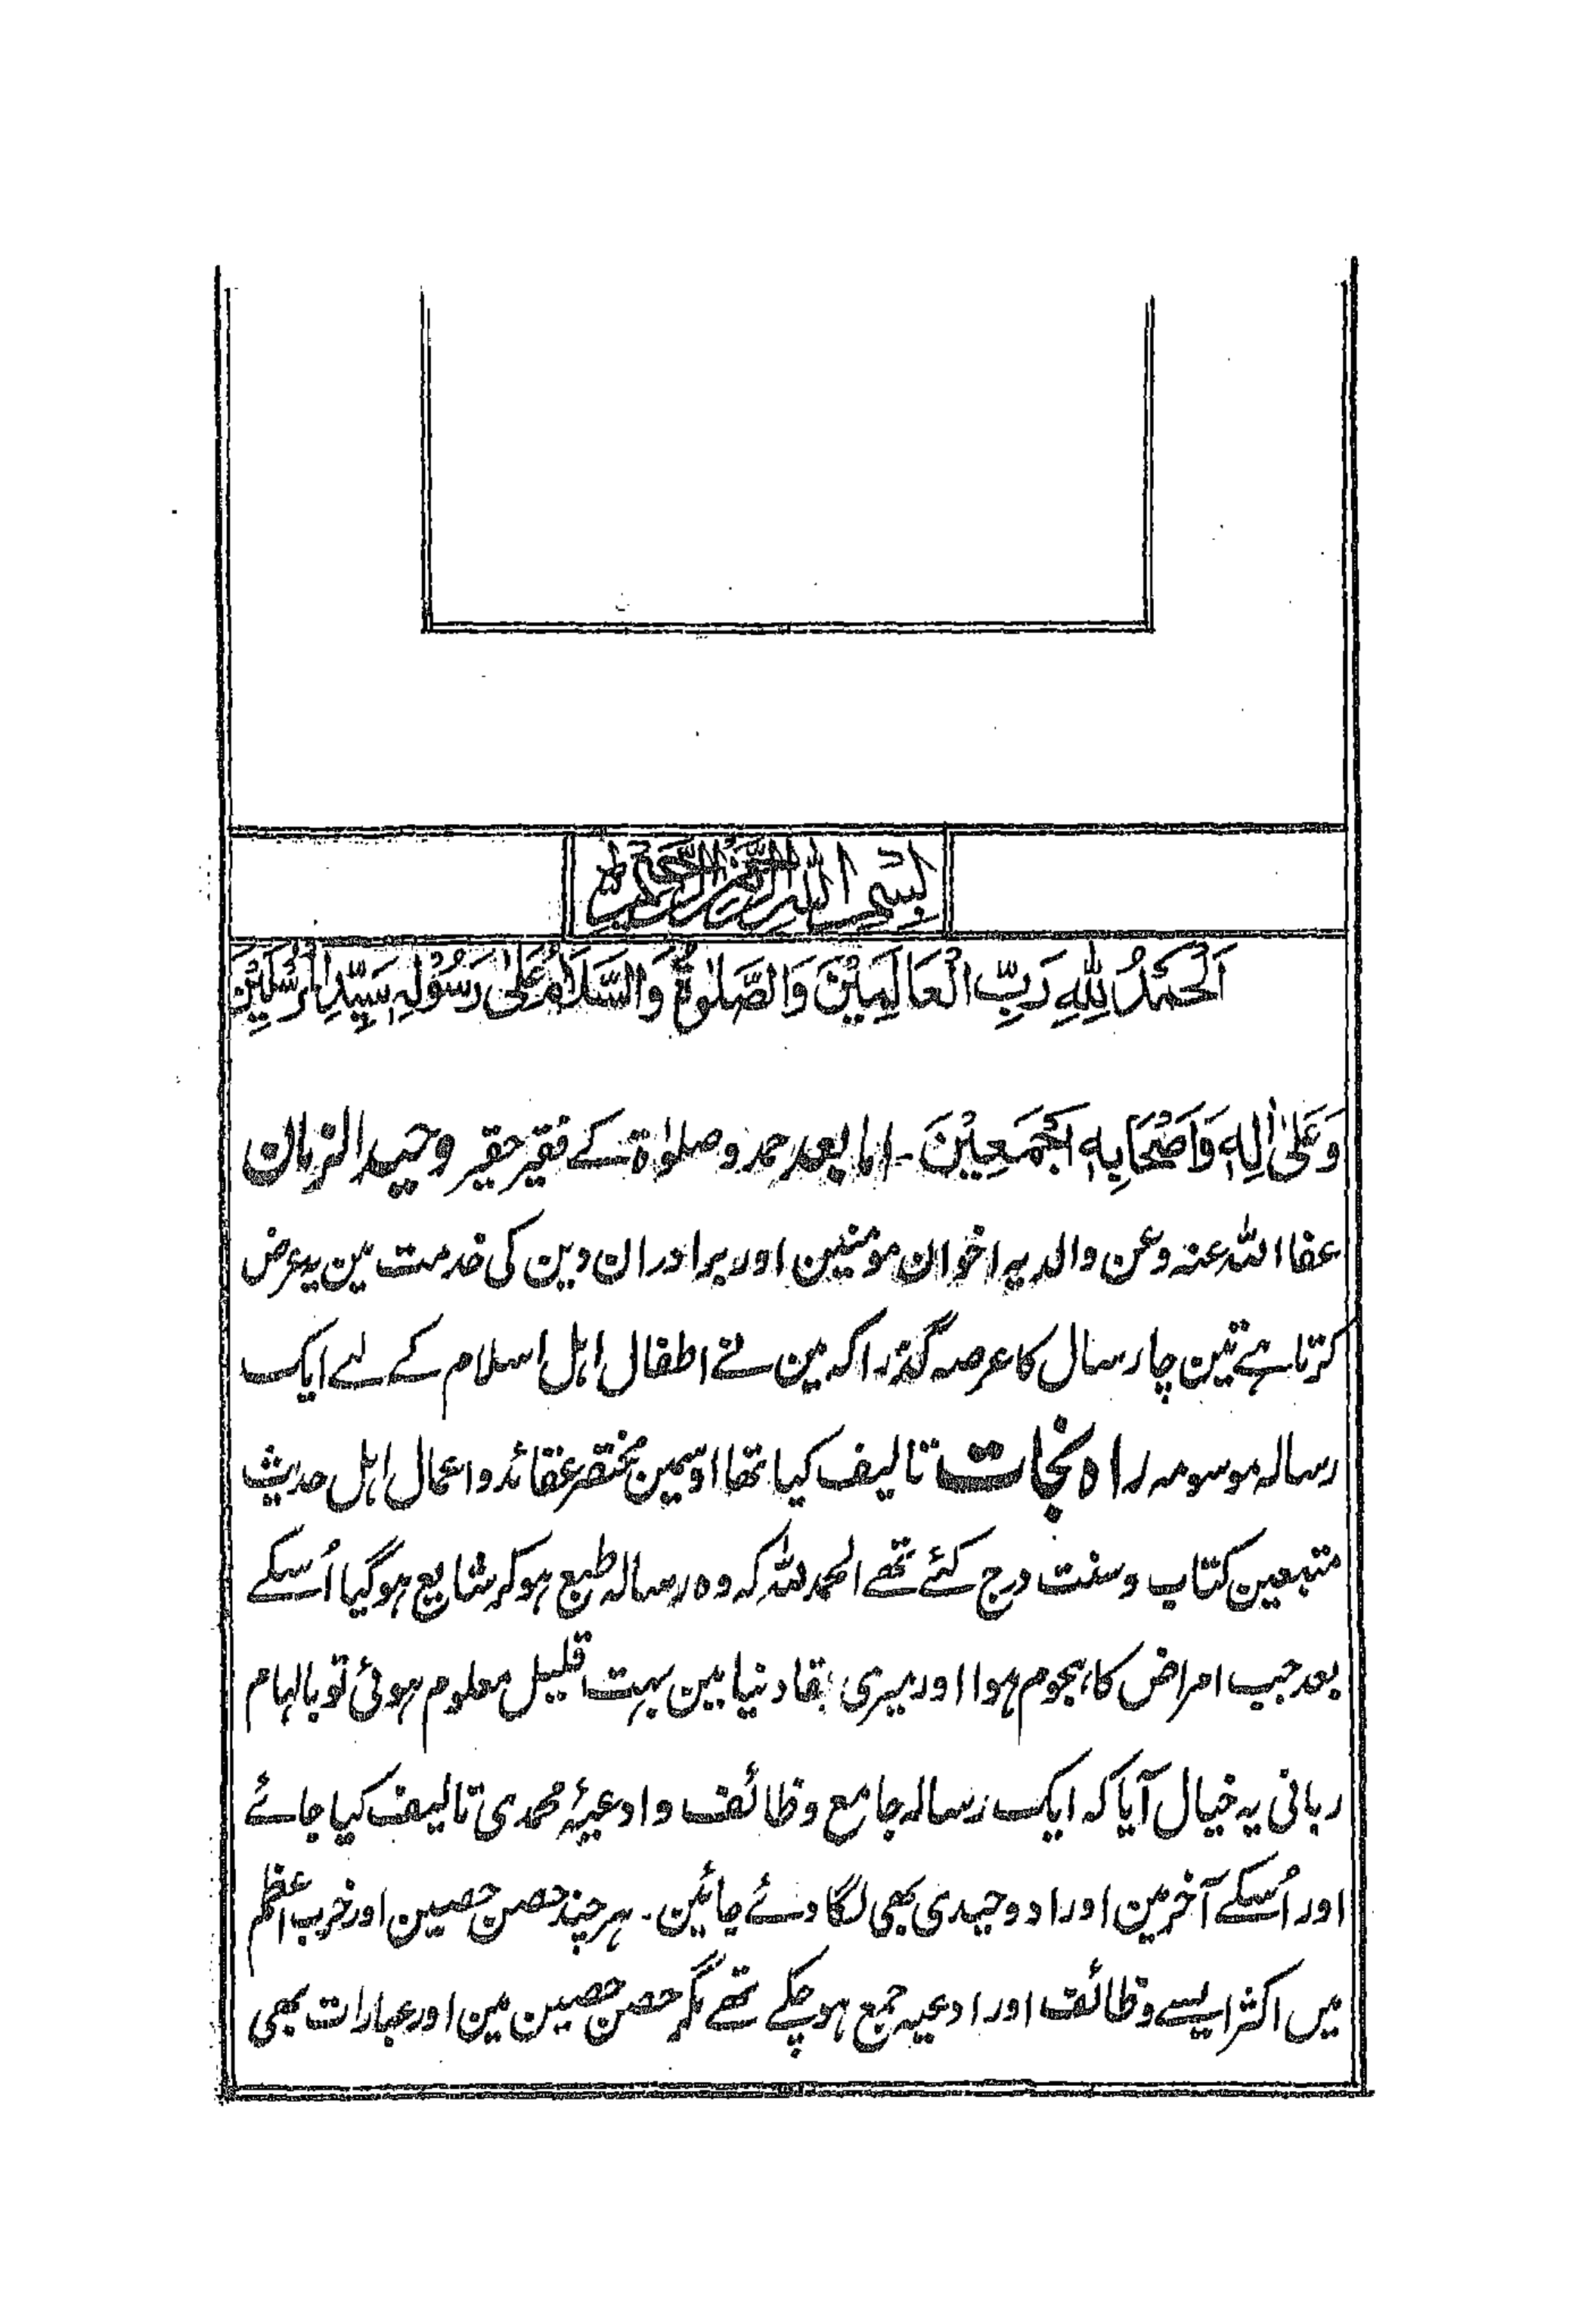 بسم اللہ الرحمن الرحیم
اَلْحَمْدُ لِلّٰهِ رَبِّ الْعَالَمِیْنَ وَالصَّلٰوةُ وَالسَّلَامُ عَلٰی رَسُوْلِهٖ سَیِّدِ الْمُرْسَلِیْنَ
وَعَلٰی اٰلِهٖ وَاَصْحَابِهٖ اَجْمَعِیْنَ۔ اما بعد حمد و صلوٰۃ کے فقیر حقیر وحید الزمان
عفا اللہ عنہ وعن والدیہ اخوان مؤمنین اور برادران دین کی خدمت مین یہ عرض
کرتا ہے تین چار سال کا عرصہ گذرا کہ مین نے اطفال اہل اسلام کے لئے ایک
رسالہ موسومہ راہ نجات تالیف کیا تھا اوسمین مختصر عقائد و اعمال اہل حدیث
متبعین کتاب و سنت درج کئے تھے الحمد للہ کہ وہ رسالہ طبع ہو کر شایع ہو گیا اُسکے
بعد جب امراض کا ہجوم ہوا اور میری بقا دنیا مین بہت قلیل معلوم ہوئی تو بالہام
ربانی یہ خیال آیا کہ ایک رسالہ جامع وظائف و ادعیۂ محمدی تالیف کیا جائے
اور اُسکے آخر مین اوراد وحیدی بھی لگا دئے جائین۔ ہر چند حصن حصین اور حزب اعظم
میں اکثر ایسے وظائف اور ادعیہ جمع ہو چکے تھے مگر حصن حصین مین اور عبارات بھی